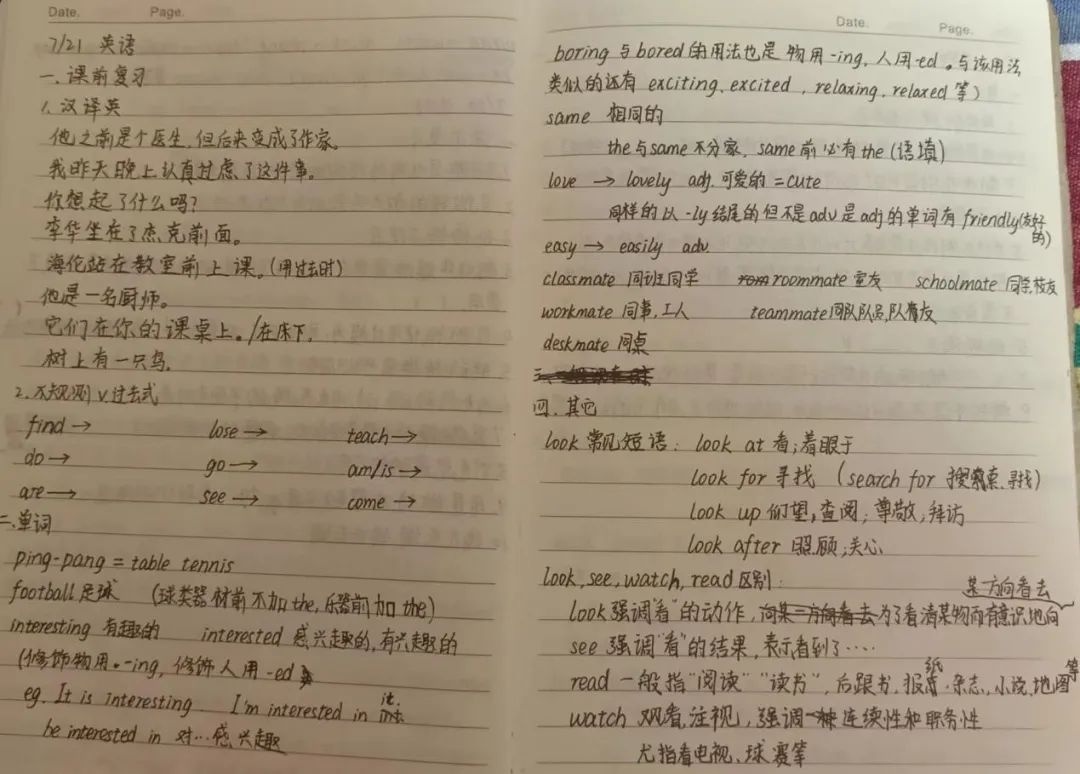 Date. Page.
7/21 英语
一.课前复习
1.汉译英
他之前是个医生,但后来变成了作家。
我昨天晚上认真过虑了这件事。
你想起了什么吗?
李华坐在了杰克前面。
海伦站在教室前上课。(用过去时)
他是一名厨师。
它们在你的课桌上。/在床下.
树上有一只鸟.
2.不规则v.过去式
find→ lose→ teach→
do→ go→ am/is→
are→ see→ come→
二.单词
ping-pang = table tennis
football 足球 (球类器材前不加the,乐器前加the)
interesting 有趣的 interested 感兴趣的,有兴趣的
(修饰物用-ing,修饰人用-ed)
eg. It is interesting. I'm interested in it.
be interested in 对…感兴趣
Date. Page.
boring 与 bored 的用法也是 物用-ing,人用-ed。与该用法
类似的还有 exciting、excited, relaxing、relaxed 等)
same 相同的
the与same不分家,same前必有the(语填)
love → lovely adj.可爱的 =cute
同样的以-ly结尾的但不是adv是adj的单词有 friendly(友好的)
easy → easily adv.
classmate 同班同学 roommate 室友 schoolmate 同学,校友
workmate 同事,工人 teammate 同队队员,队友
deskmate 同桌
四.其它
look 常见短语: look at 看;着眼于
look for 寻找 (search for 搜索,寻找)
look up 仰望,查阅;尊敬,拜访
look after 照顾;关心
look, see, watch, read 区别:
look 强调"看"的动作,为了看清某物而有意识地向某方向看去
see 强调"看"的结果,表示看到了……
read 一般指"阅读""读书",后跟书、报纸、杂志,小说,地图等
watch 观看,注视,强调连续性和职务性
尤指看电视、球赛等